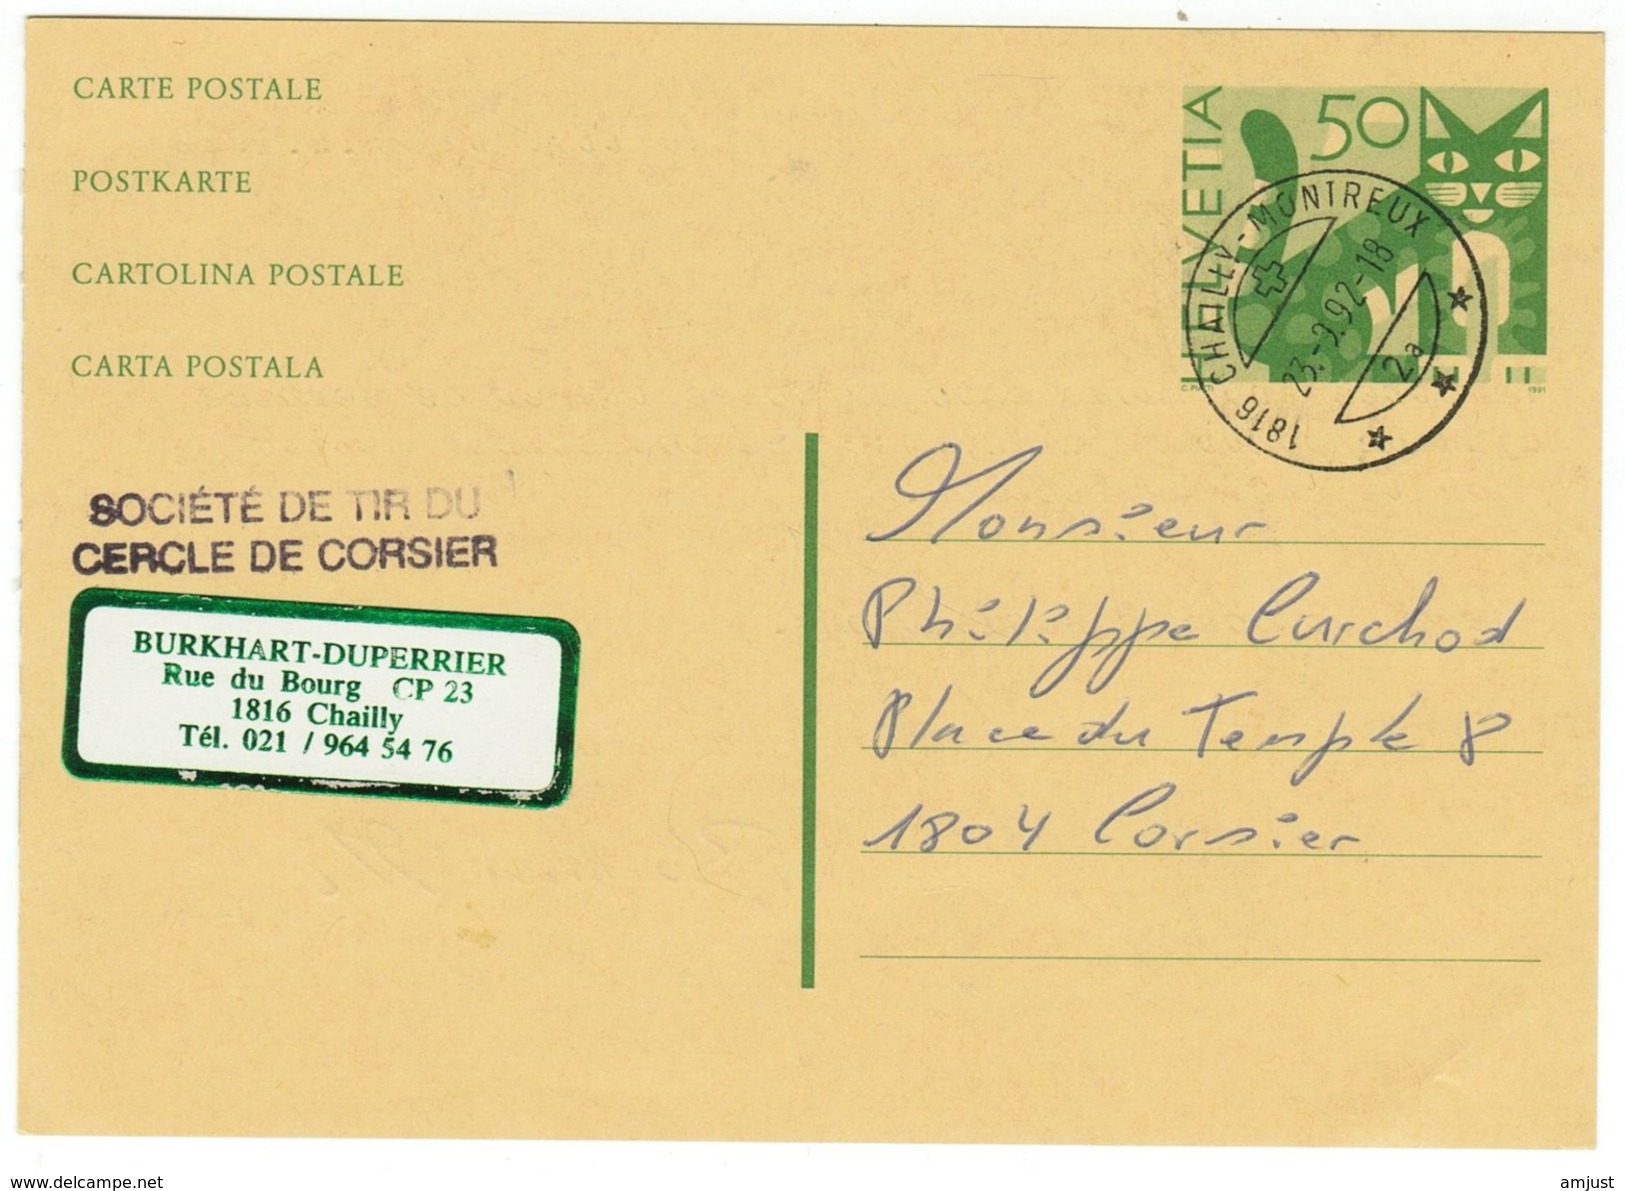 CARTE POSTALE
POSTKARTE
CARTOLINA POSTALE
CARTA POSTALA
HELVETIA
50
C. PIATTI
1991
1816 CHAILLY-MONTREUX
23.-9.92-18
2a
SOCIÉTÉ DE TIR DU
CERCLE DE CORSIER
BURKHART-DUPERRIER
Rue du Bourg CP 23
1816 Chailly
Tél. 021 / 964 54 76
Monsieur
Philippe Curchod
Place du Temple 8
1804 Corsier
www.delcampe.net
amjust